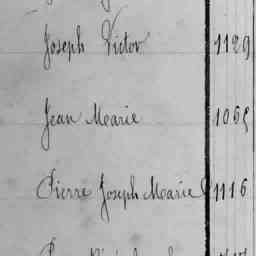 Joseph Victor 1129
Jean Marie 1065
Pierre Joseph Marie 1116